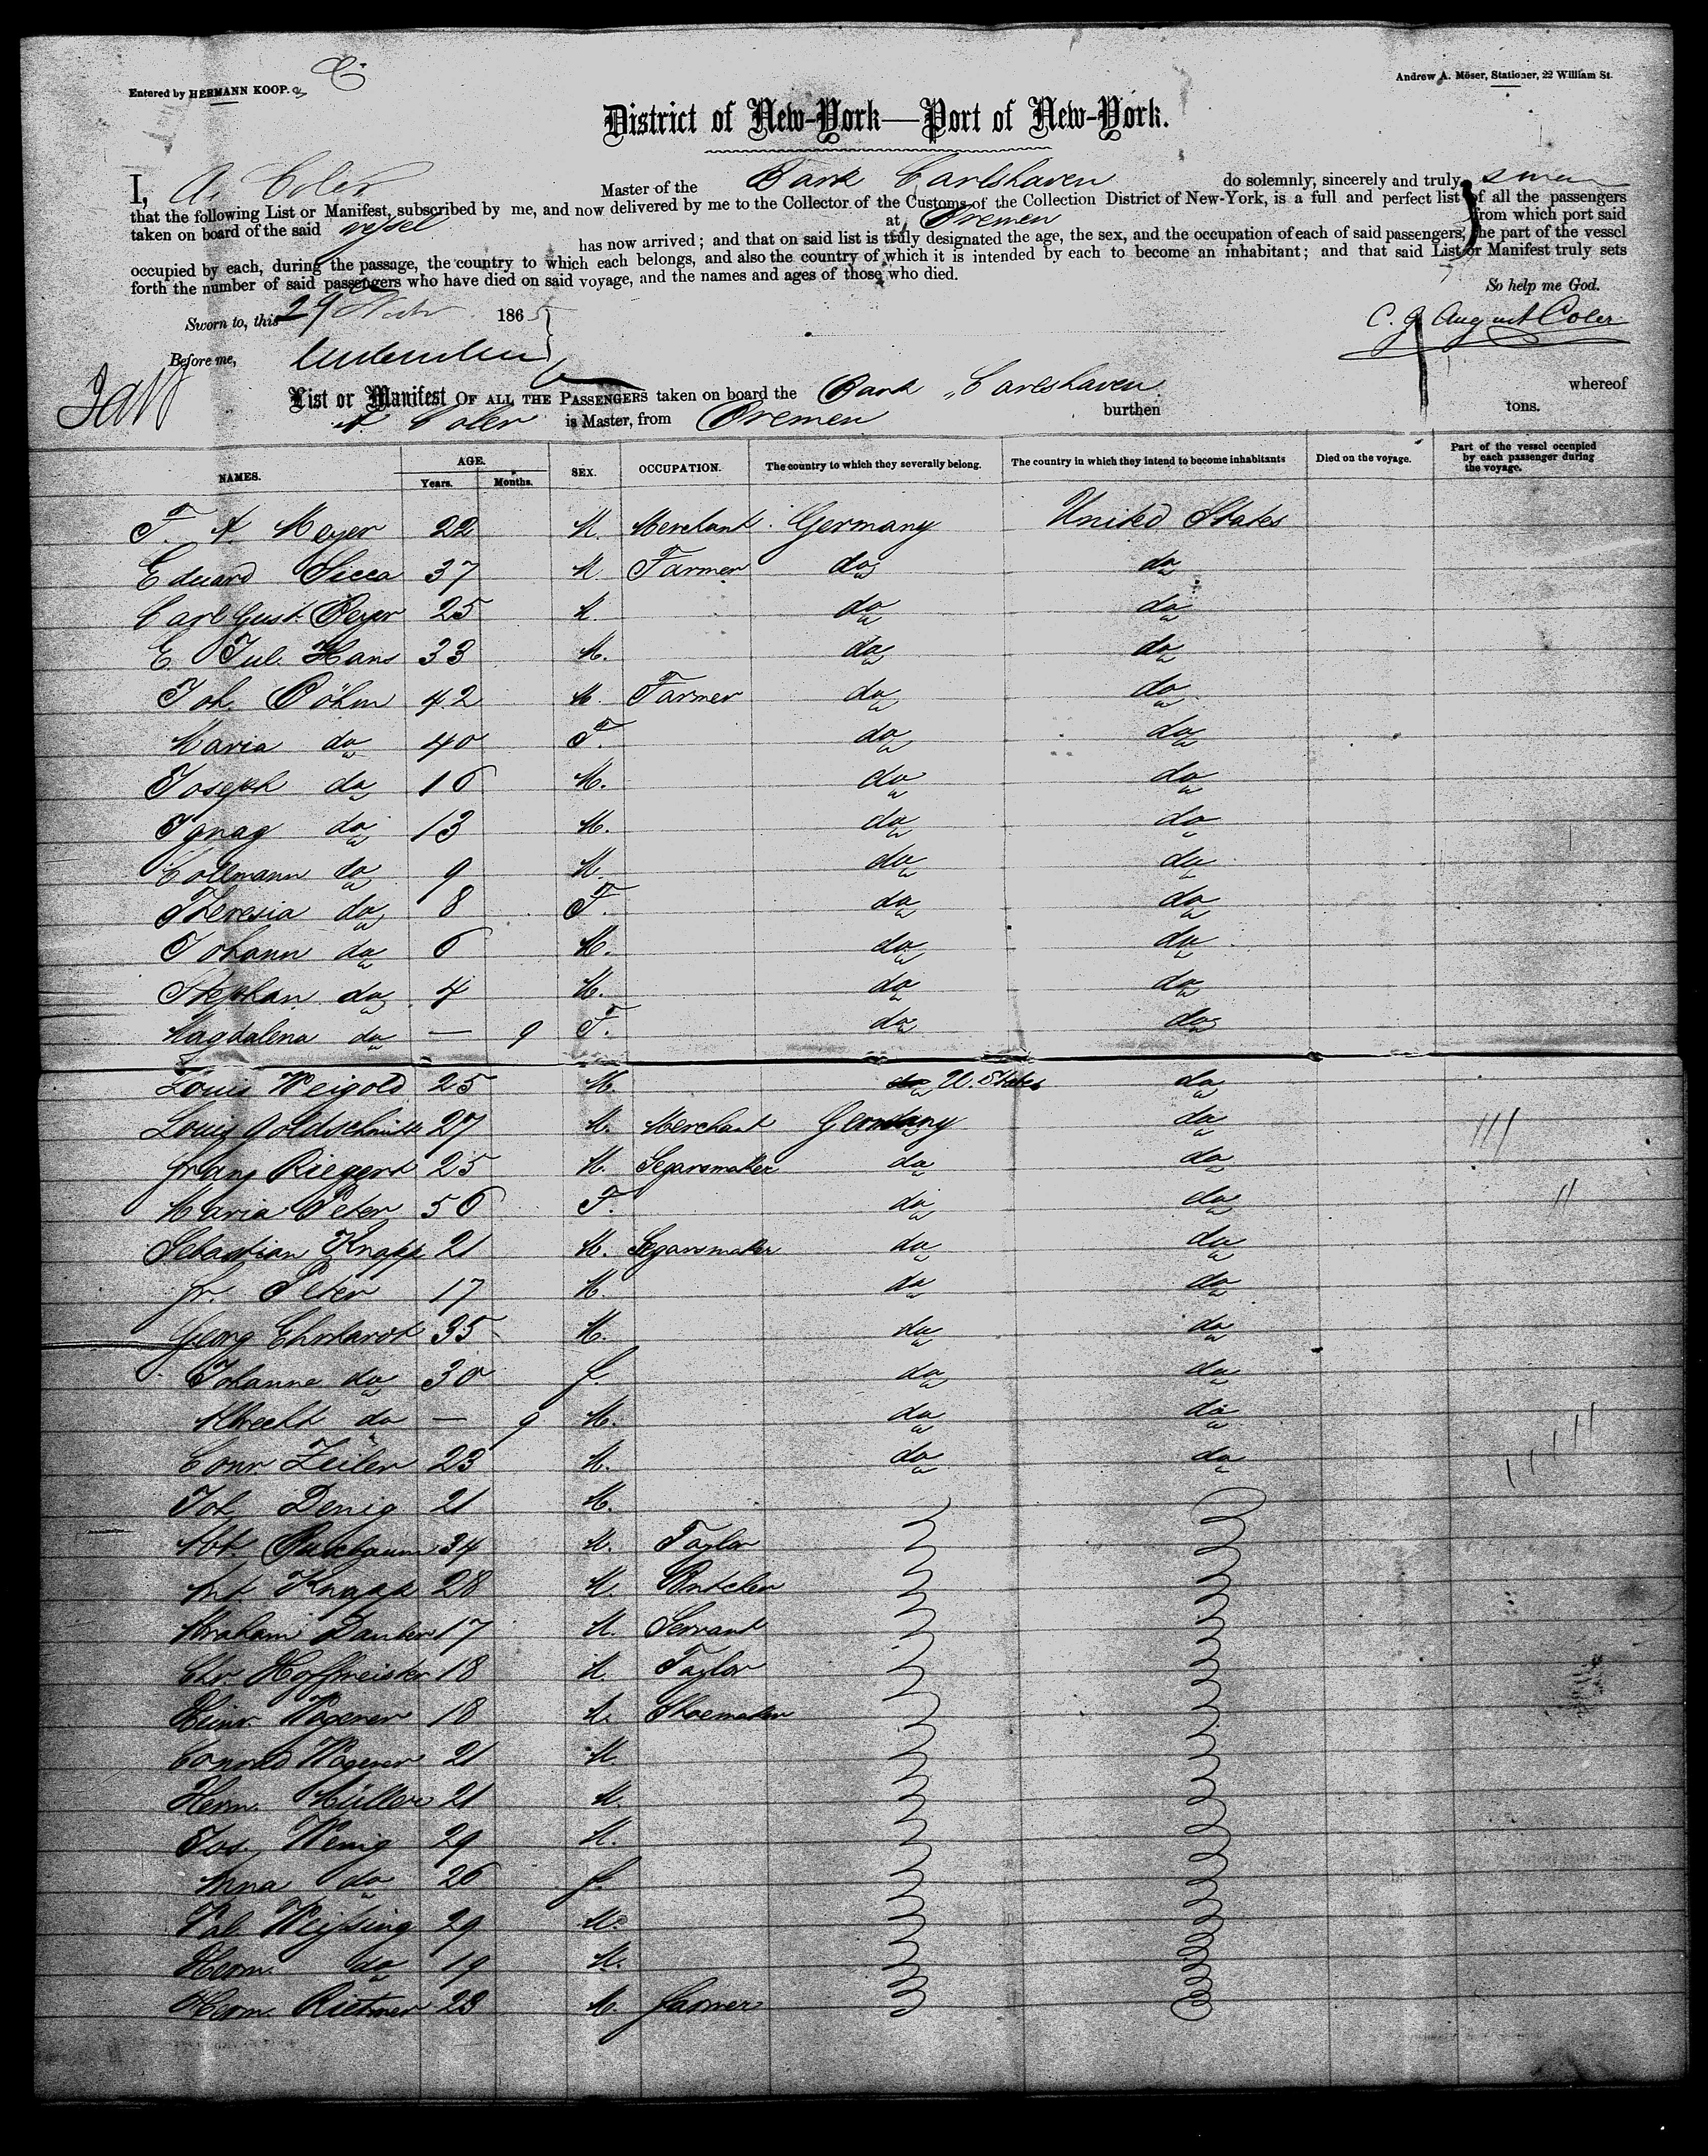 Entered by HERMANN KOOP.
Andrew A. Möser, Stationer, 22 William St.
District of New-York—Port of New-York.
I, A. Coler Master of the Bark Carlshaven do solemnly, sincerely and truly swear
that the following List or Manifest, subscribed by me, and now delivered by me to the Collector of the Customs of the Collection District of New-York, is a full and perfect list of all the passengers
taken on board of the said vessel at Bremen from which port said
has now arrived; and that on said list is truly designated the age, the sex, and the occupation of each of said passengers, the part of the vessel
occupied by each, during the passage, the country to which each belongs, and also the country of which it is intended by each to become an inhabitant; and that said List or Manifest truly sets
forth the number of said passengers who have died on said voyage, and the names and ages of those who died.
So help me God.
Sworn to, this 29 1865
C. G. August Coler
Before me,
List or Manifest OF ALL THE PASSENGERS taken on board the Bark "Carlshaven whereof
A Coler is Master, from Bremen burthen tons.
NAMES. AGE. SEX. OCCUPATION. The country to which they severally belong. The country in which they intend to become inhabitants Died on the voyage. Part of the vessel occupied by each passenger during the voyage.
Years. Months.
F. A Meyer 22 M. Merchant Germany United States
Eduard Sicca 37 M Farmer do do
Carl Gust. Beyer 25 M. do do
E Jul. Hans 33 M. do do
Joh. Böhm 42 M. Farmer do do
Maria do 40 F. do do
Joseph do 16 M. do do
Ignaz do 13 M. do do
Collmann do 9 M. do do
Theresia do 8 F. do do
Johann do 6 M. do do
Stephan do 4 M. do do
Magdalena do — 9 F. do do
Louis Weigold 25 M. do U. States do
Louis Goldschmidt 27 M. Merchant Germany do
Franz Riegert 25 M. Segarsmaker do do
Maria Peter 56 F. do do
Sebastian Knapp 21 M. Segarsmaker do do
Fr. Peter 17 M. do do
Georg Ehrhardt 35 M. do do
Johanne do 30 f. do do
Albrecht do — 9 M. do do
Conr. Zeiler 23 M. do do
Joh. Denig 21 M.
34 M. Taylor
Ant. Knapp 28 M. Butcher
Abraham Dauber 17 M. Servant
Chr. Hoffmeister 18 M. Taylor
Heinr. Wagener 18 M. Shoemaker
Conrad Wagener 21 M.
Herm. Müller 21 M.
Jos. Wenig 29 M.
Anna do 26 f.
Val. Weissing 29 M.
Herm. do 19 M.
Herm. Rietmer 23 M. farmer